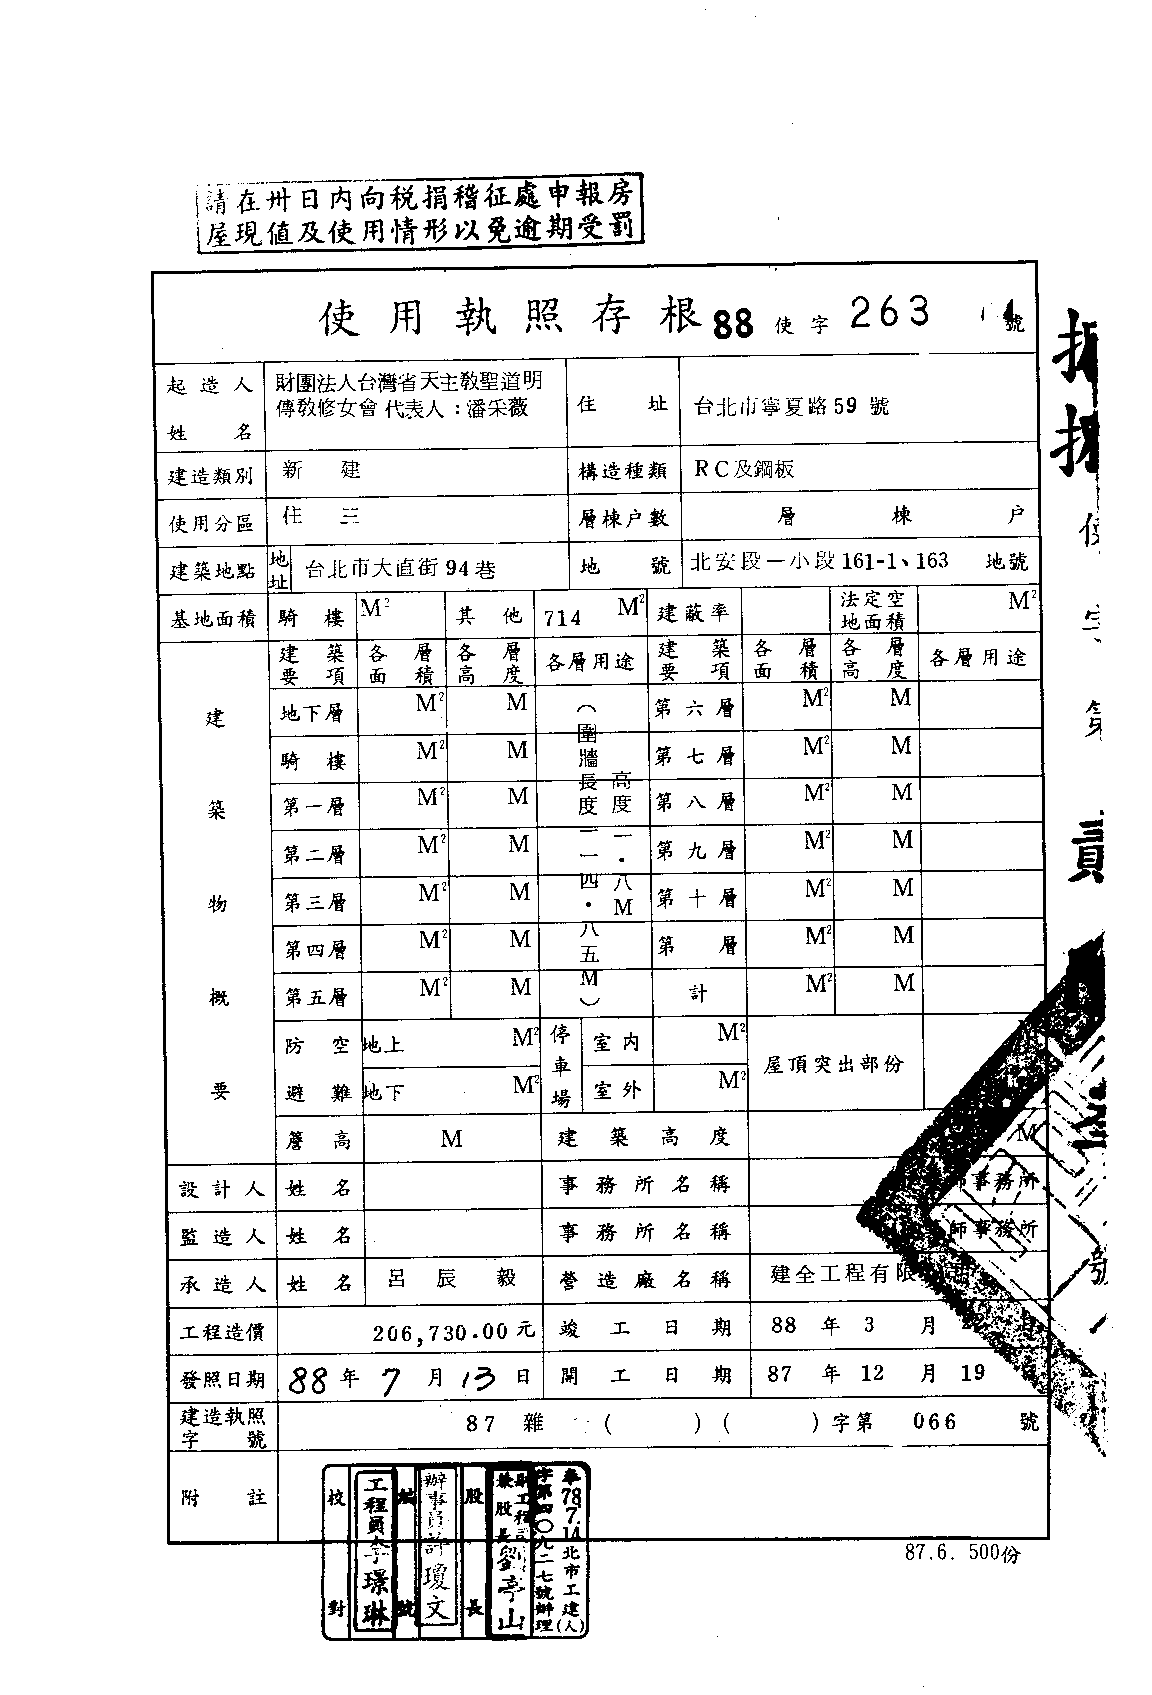 請在卅日內向稅捐稽征處申報房
屋現值及使用情形以免逾期受罰
使用執照存根 88 使字 263 號
起造人姓名 財團法人台灣省天主教聖道明傳教修女會 代表人：潘采薇 住址 台北市寧夏路59號
建造類別 新建 構造種類 RC及鋼板
使用分區 住三 層棟户數 層 棟 户
建築地點 地址 台北市大直街94巷 地號 北安段一小段161-1、163 地號
基地面積 騎樓 M² 其他 714 M² 建蔽率 法定空地面積 M²
建築物概要
建築要項 各層面積 各層高度 各層用途 建築要項 各層面積 各層高度 各層用途
地下層 M² M 第六層 M² M
騎樓 M² M 第七層 M² M
第一層 M² M 第八層 M² M
第二層 M² M 第九層 M² M
第三層 M² M 第十層 M² M
第四層 M² M 第 層 M² M
第五層 M² M 計 M² M
（圍牆長度一一四·八五M）
高度二·八M
防空避難 地上 M² 停車場 室內 M² 屋頂突出部份
地下 M² 室外 M²
簷高 M 建築高度 M
設計人 姓名 事務所名稱 師事務所
監造人 姓名 事務所名稱 師事務所
承造人 姓名 呂辰毅 營造廠名稱 建全工程有限
工程造價 206,730.00元 竣工日期 88年3月
發照日期 88年7月13日 開工日期 87年12月19
建造執照字號 87雜（ ）（ ）字第 066 號
附註
87.6. 500份
校對 工程員李璟琳
號 辦事員許瓊文
股長 劉亭山
奉78.7.14北市工建(人)
字第四〇九二七號辦理
使字第
號